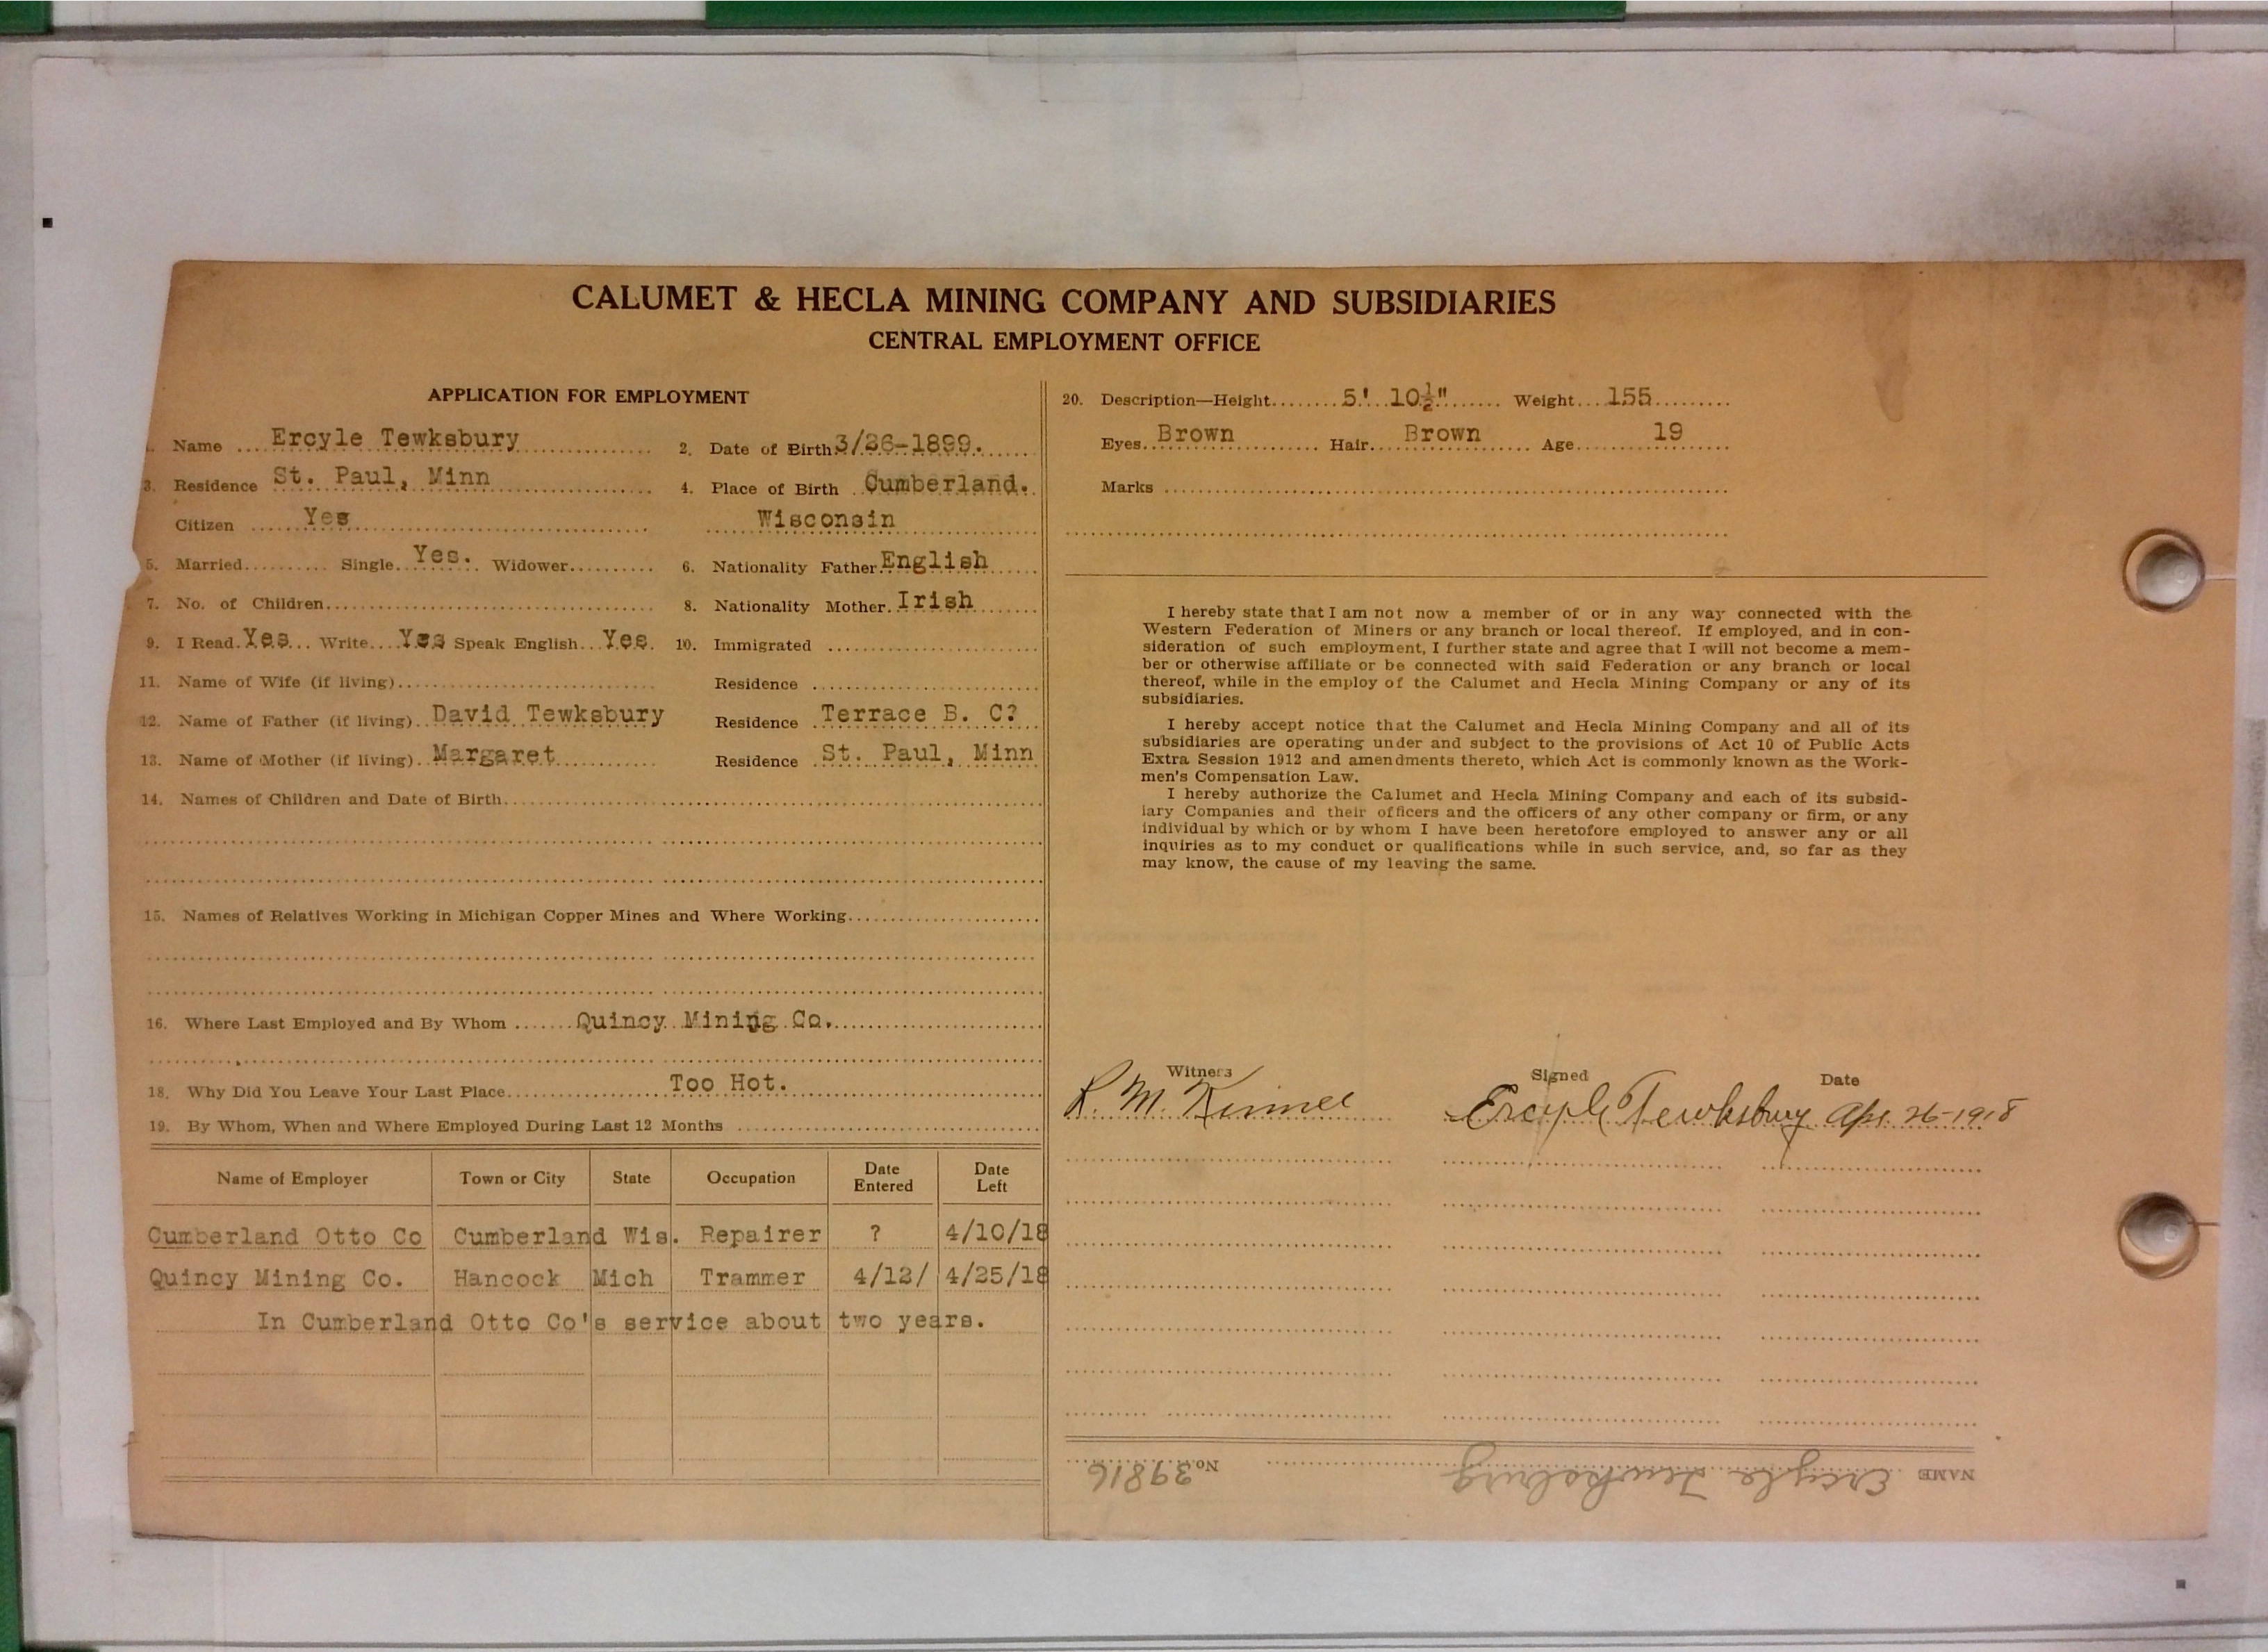 CALUMET & HECLA MINING COMPANY AND SUBSIDIARIES
CENTRAL EMPLOYMENT OFFICE
APPLICATION FOR EMPLOYMENT
1. Name Ercyle Tewksbury 2. Date of Birth 3/26-1899.
3. Residence St. Paul, Minn 4. Place of Birth Cumberland.
Citizen Yes Wisconsin
5. Married Single Yes. Widower 6. Nationality Father English
7. No. of Children 8. Nationality Mother Irish
9. I Read Yes Write Yes Speak English Yes. 10. Immigrated
11. Name of Wife (if living) Residence
12. Name of Father (if living) David Tewksbury Residence Terrace B. C?
13. Name of Mother (if living) Margaret Residence St. Paul, Minn
14. Names of Children and Date of Birth
15. Names of Relatives Working in Michigan Copper Mines and Where Working
16. Where Last Employed and By Whom Quincy Mining Co.
18. Why Did You Leave Your Last Place Too Hot.
19. By Whom, When and Where Employed During Last 12 Months
Name of Employer Town or City State Occupation Date Entered Date Left
Cumberland Otto Co Cumberland Wis. Repairer ? 4/10/18
Quincy Mining Co. Hancock Mich Trammer 4/12/ 4/25/18
In Cumberland Otto Co's service about two years.
20. Description—Height 5' 10½" Weight 155
Eyes Brown Hair Brown Age 19
Marks
I hereby state that I am not now a member of or in any way connected with the
Western Federation of Miners or any branch or local thereof. If employed, and in con-
sideration of such employment, I further state and agree that I will not become a mem-
ber or otherwise affiliate or be connected with said Federation or any branch or local
thereof, while in the employ of the Calumet and Hecla Mining Company or any of its
subsidiaries.
I hereby accept notice that the Calumet and Hecla Mining Company and all of its
subsidiaries are operating under and subject to the provisions of Act 10 of Public Acts
Extra Session 1912 and amendments thereto, which Act is commonly known as the Work-
men's Compensation Law.
I hereby authorize the Calumet and Hecla Mining Company and each of its subsid-
iary Companies and their officers and the officers of any other company or firm, or any
individual by which or by whom I have been heretofore employed to answer any or all
inquiries as to my conduct or qualifications while in such service, and, so far as they
may know, the cause of my leaving the same.
Witness Signed Date
R. M. Kinnel Ercyle Tewksbury Apr. 26-1918
NAME Ercyle Tewksbury No. 39816